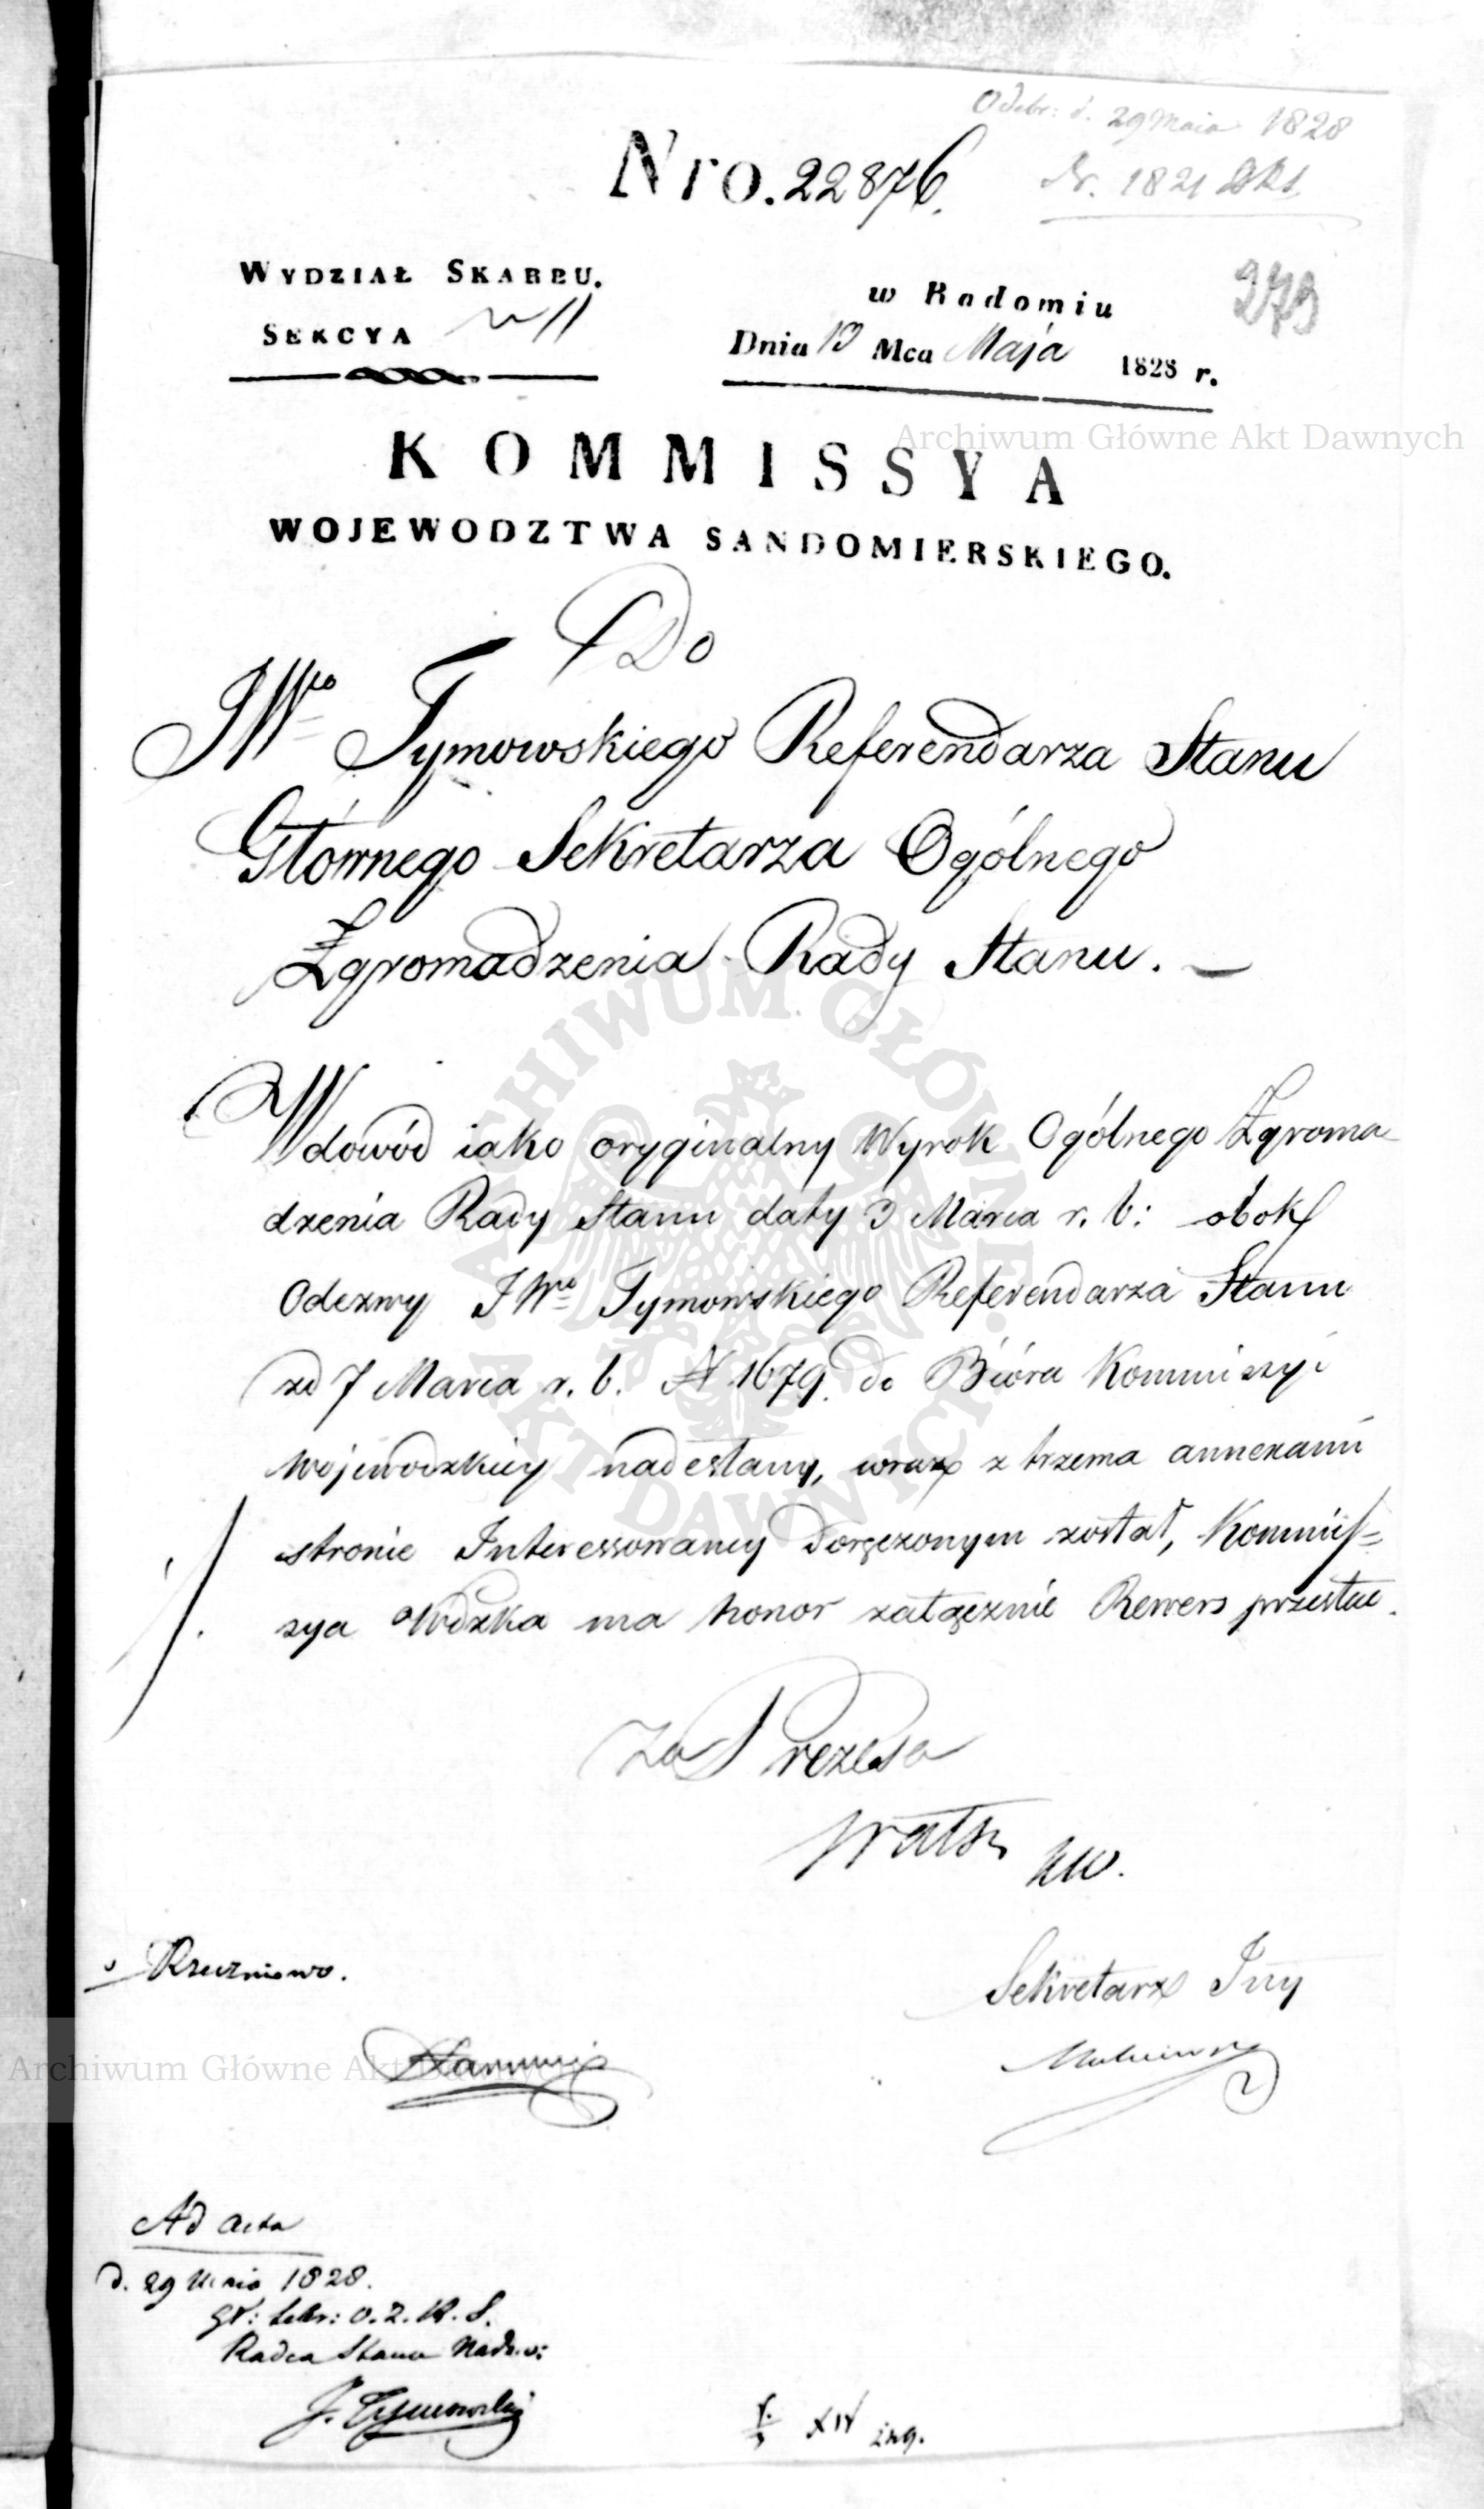 Odebr: d. 29 Maia 1828
Nr. 1821
Nro. 22876.
279
WYDZIAŁ SKARBU.
SEKCYA
w Radomiu
Dnia 13 Mca Maja 1828 r.
Archiwum Główne Akt Dawnych
KOMMISSYA
WOJEWODZTWA SANDOMIERSKIEGO.
Do
JWgo Tymowskiego Referendarza Stanu
Głównego Sekretarza Ogólnego
Zgromadzenia Rady Stanu. —
ARCHIWUM GŁÓWNE AKT DAWNYCH
W dowód iako oryginalny Wyrok Ogólnego Zgroma
dzenia Rady Stanu daty 3 Marca r. b: obok
Odezwy JWgo Tymowskiego Referendarza Stanu
zd 7 Marca r. b. N 1679. do Bióra Kommiszyi
Wojewodzkiey nadesłany, wraz z trzema annexami
stronie Interessowaney doręczonym został, Kommis=
sya Wdzka ma honor załącznie Rewers przesłać.
Za Prezesa
KW.
Sekretarz Jny
Archiwum Główne Akt Dawnych
Ad acta
d. 29 Maia 1828.
gł: Sekr: O. Z. R. S.
Radca Stanu Nadz.:
J. Tymowski
XIV